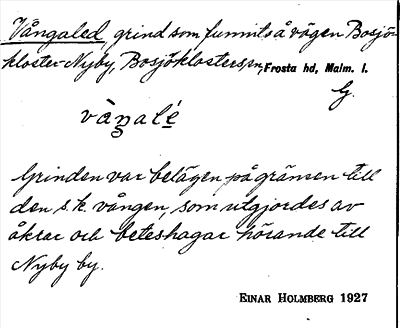 Vångaled, grind som funnits å vägen Bosjö-
kloster-Nyby, Bosjöklosters sn, Frosta hd, Malm. l.
G.
vàŋalé
Grinden var belägen på gränsen till
den s.k. vången, som utgjordes av
åkrar och beteshagar hörande till
Nyby by.
EINAR HOLMBERG 1927